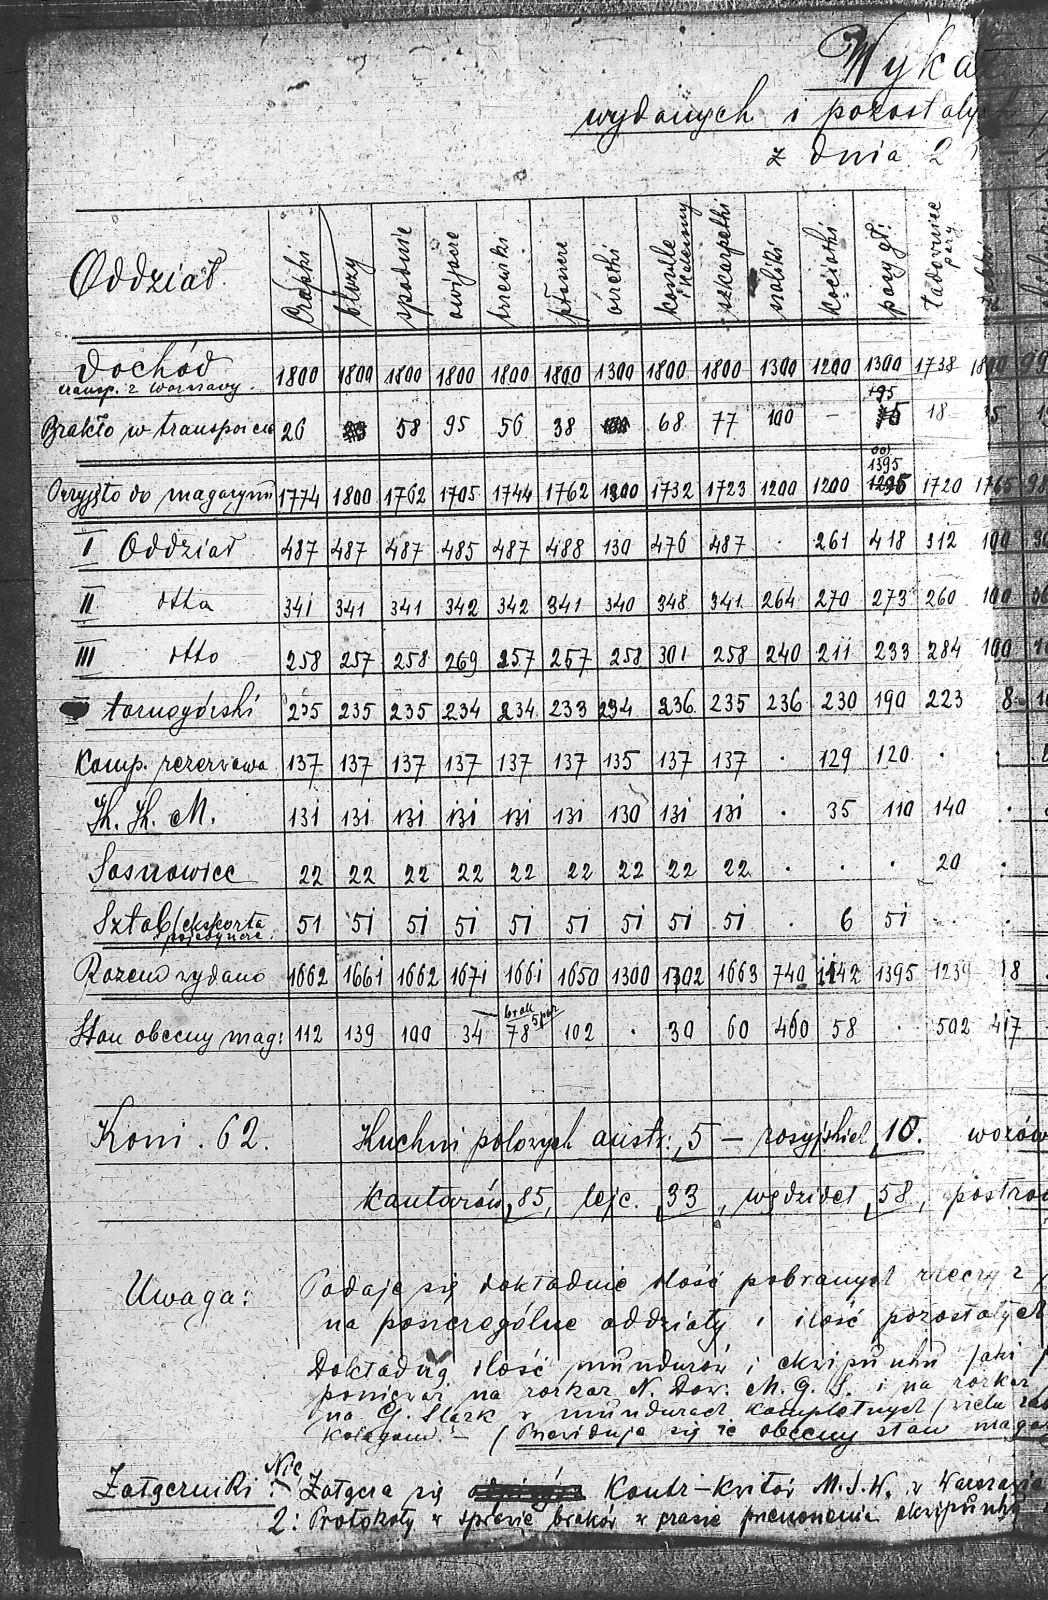 Wykaz
wydanych i pozostałych
z dnia 2
Oddział czapki bluzy spodnie owijacze trzewiki płaszcze koszule i kalesony szkarpetki szaliki kociołki pasy gł: ładownice pary
Dochód 1800 1800 1800 1800 1800 1800 1300 1800 1800 1300 1200 1300 1738
transp. z Warszawy. +95
Brakło w transporcie 26 58 95 56 38 68 77 100 – 18 35
1395
Przyjęto do magazynu 1774 1800 1762 1705 1744 1762 1300 1732 1723 1200 1200 1720 1765
I Oddział 487 487 487 485 487 488 130 476 487 . 261 418 312 100
II otto 341 341 341 342 342 341 340 348 341 264 270 273 260 100
III otto 258 257 258 269 257 257 258 301 258 240 211 233 284 100
tarnogórski 235 235 235 234 234 233 234 236 235 236 230 190 223
Komp. rezerwowa 137 137 137 137 137 137 135 137 137 . 129 120 . .
131 131 131 131 131 131 130 131 131 . 35 110 140 .
Sosnowiec 22 22 22 22 22 22 22 22 22 . . . 20 .
Sztab / ekskorta 51 51 51 51 51 51 51 51 51 . 6 51 . .
Razem wydano 1662 1661 1662 1671 1661 1650 1300 1702 1663 740 1142 1395 1239
brak 5 par
Stan obecny mag: 112 139 100 34 78 102 . 30 60 460 58 . 502 417
Koni . 62. Kuchni polowych austr: 5 – rosyjskich 10. wozów
Kantarów 85, lejc. 33, wędzideł 58, postron
Uwaga: Podaje się dokładnie ilość pobranych rzeczy z
na poszczególne oddziały i ilość pozostałych
Dokładną ilość mundurów i ekwipunku jaki
ponieważ na rozkaz N. Dow. M. G. S. i na rozkaz
na G. Śląsk w mundurach kompletnych
kolegom. – / Przewiduje się że obecny stan magaz
Nic
Załączniki : 1/ Załącza się Kontr-kwitów M.S.W. w Warszawie
2: Protokoły w sprawie braków w czasie przenoszenia ekwipunku